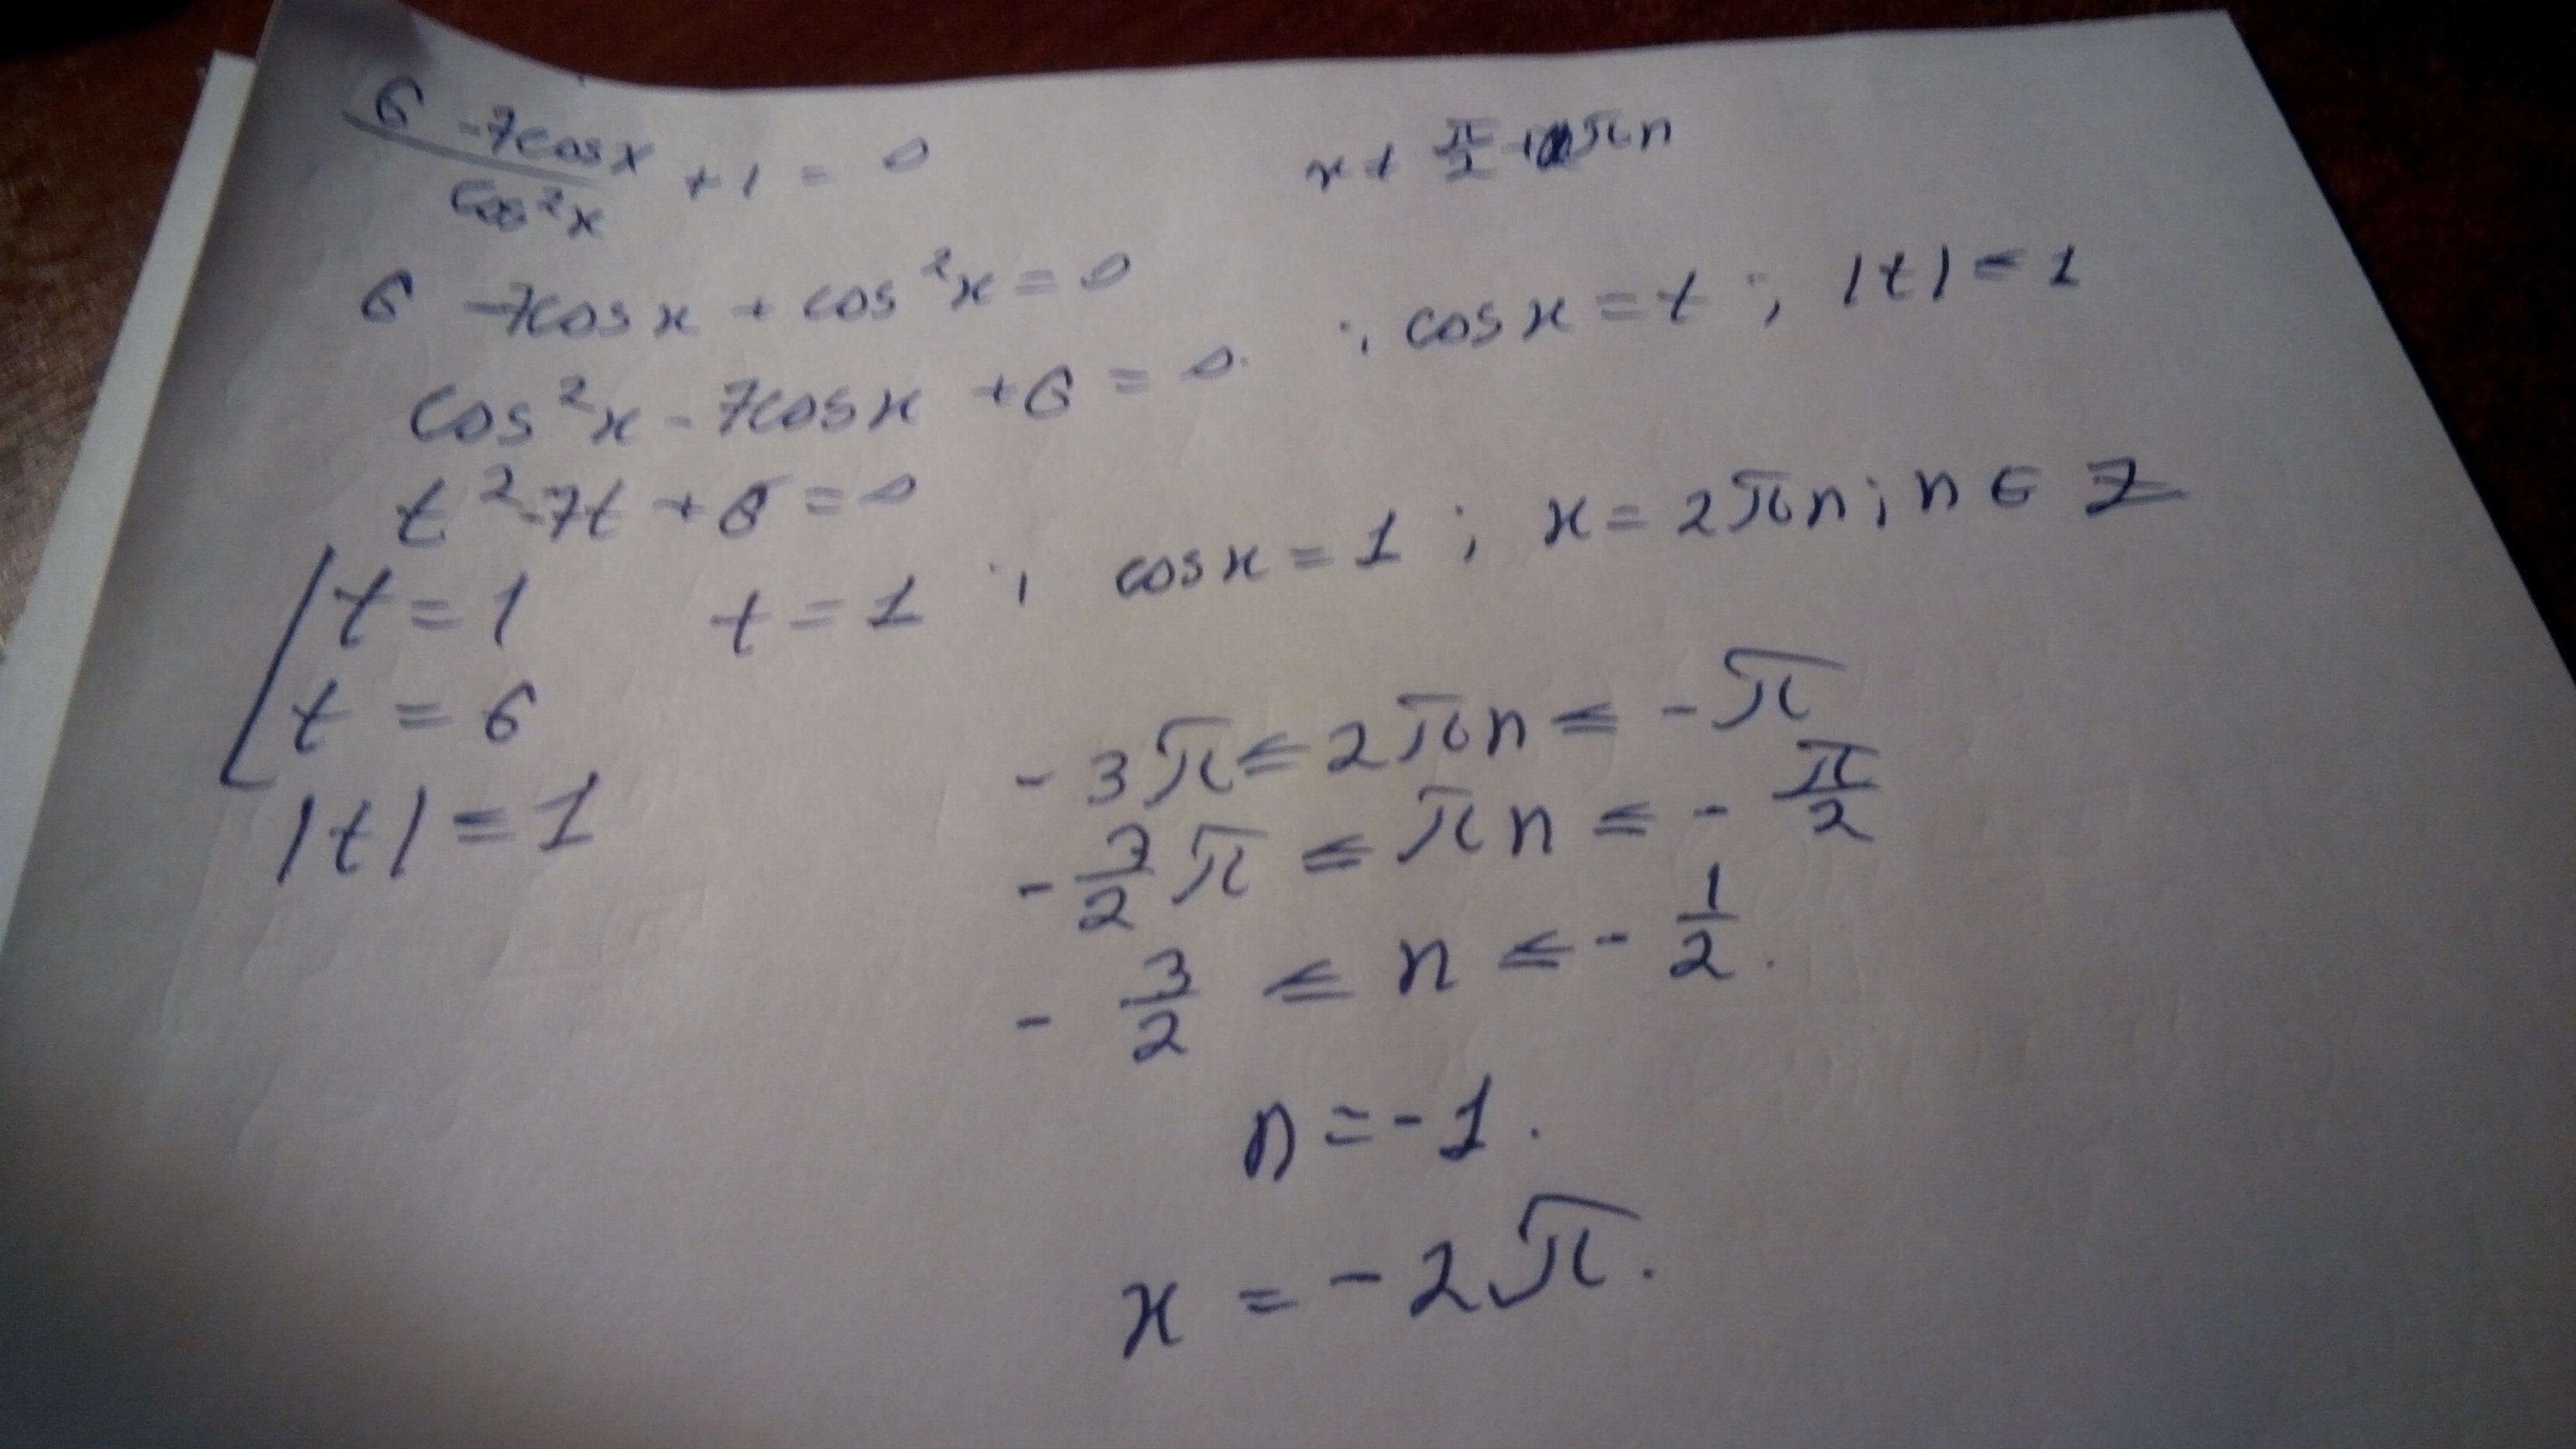 (6 - 7cosx)/cos²x + 1 = 0
x ≠ π/2 + πn
6 - 7cosx + cos²x = 0
cos²x - 7cosx + 6 = 0 ; cosx = t ; |t| ≤ 1
t² - 7t + 6 = 0
[ t = 1 t = 1 ; cosx = 1 ; x = 2πn ; n ∈ Z
t = 6
|t| ≤ 1
-3π ≤ 2πn ≤ -π
-3/2 π ≤ πn ≤ -π/2
-3/2 ≤ n ≤ -1/2.
n = -1.
x = -2π.